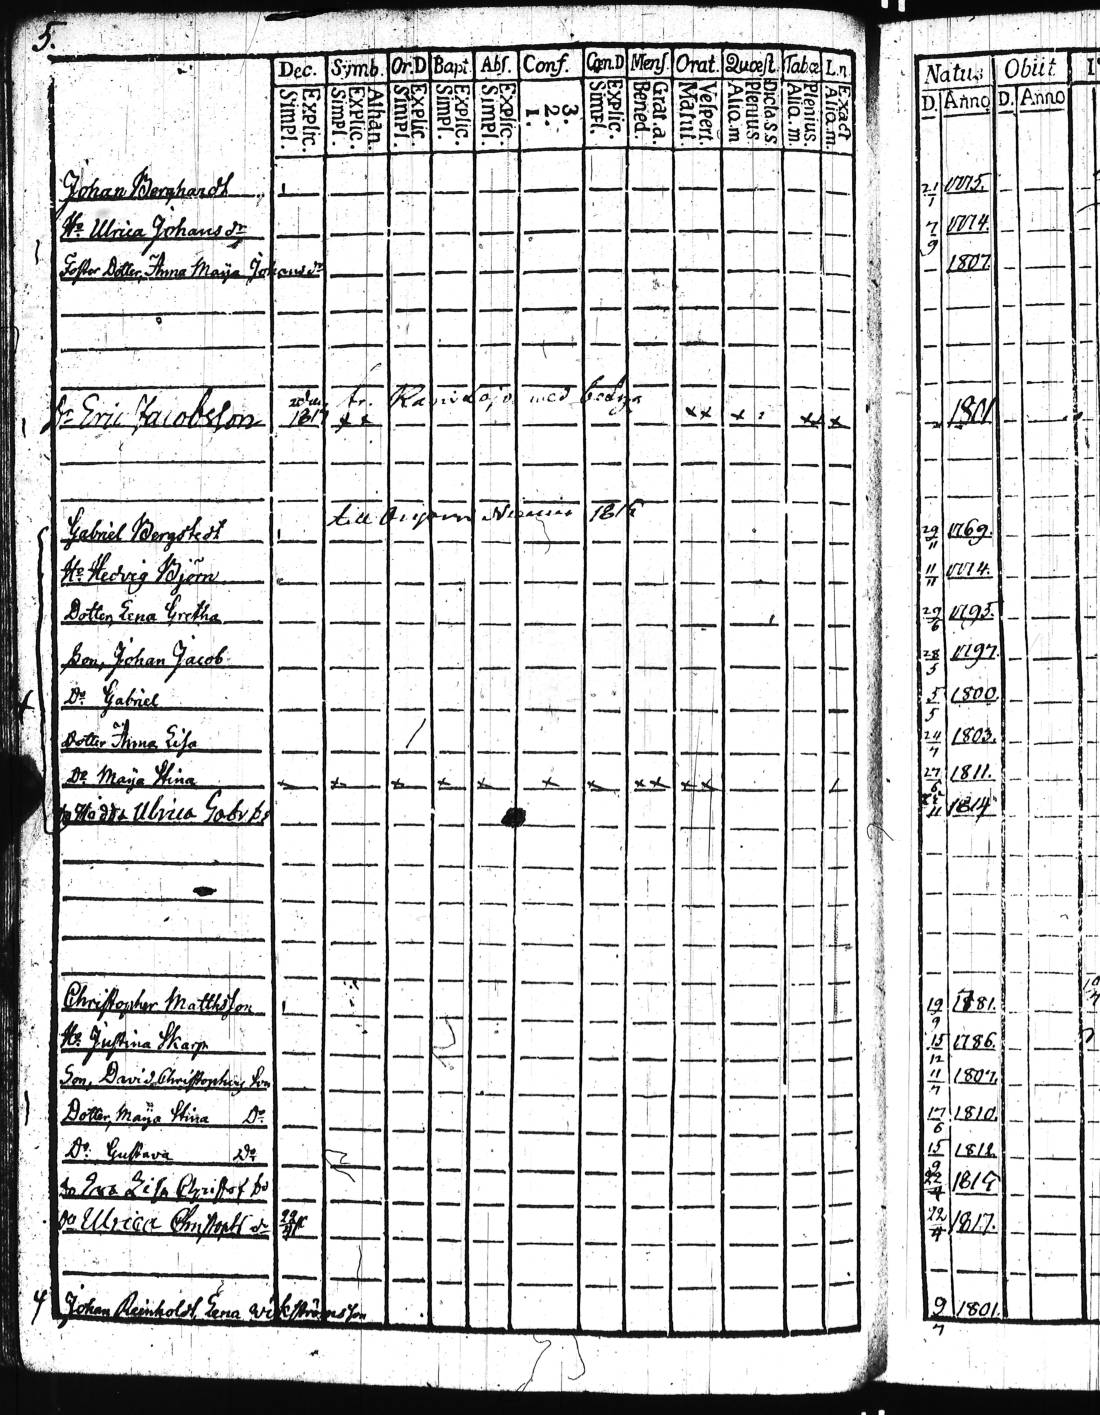 5.
Dec. Symb. Or.D Bapt Abs. Conf. Cœn.D Mens. Orat. Quæst. Tabæ L.n.
Simpl. Explic. Simpl. Explic. Athan. Simpl. Explic. Simpl. Explic. Simpl. Explic. 1. 2. 3. Simpl. Explic. Bened. Grat.a. Matut. Vespert. Alia.m Plenius D:class Alia.m. Plenius. Alia.m. Exact
Natus Obiit
D. Anno D. Anno
Johan Berghardt 21/1 1775.
Ho Ulrica Johans dr 7/9 1774.
Foster Dotter, Anna Maija Johans dr 1807.
Dr Eric Jacobsson 1817 fr. med 1801
Gabriel Bergstedt till 29/11 1769.
Ho Hedvig Björn 11/11 1774.
Dotter, Lena Gretha 29/6 1795.
Son, Johan Jacob 28/5 1797.
Do Gabriel 5/5 1800.
Dotter Anna Lisa 24/7 1803.
Do Maija Stina 27/6 1811.
Hedda Ulrica 1814
Christopher Matthsson 19/9 1781.
Ho Justina Skarp 15/12 1786.
Son, David Christophers Son 11/7 1807.
Dotter, Maija Stina Do 17/6 1810.
Do Gustava Do 15/9 1812.
Do Eva Lisa 22/4
Do Ulrica 22/4 1817.
4 Johan Reinholdt, Lena Wikströms son 9/7 1801.